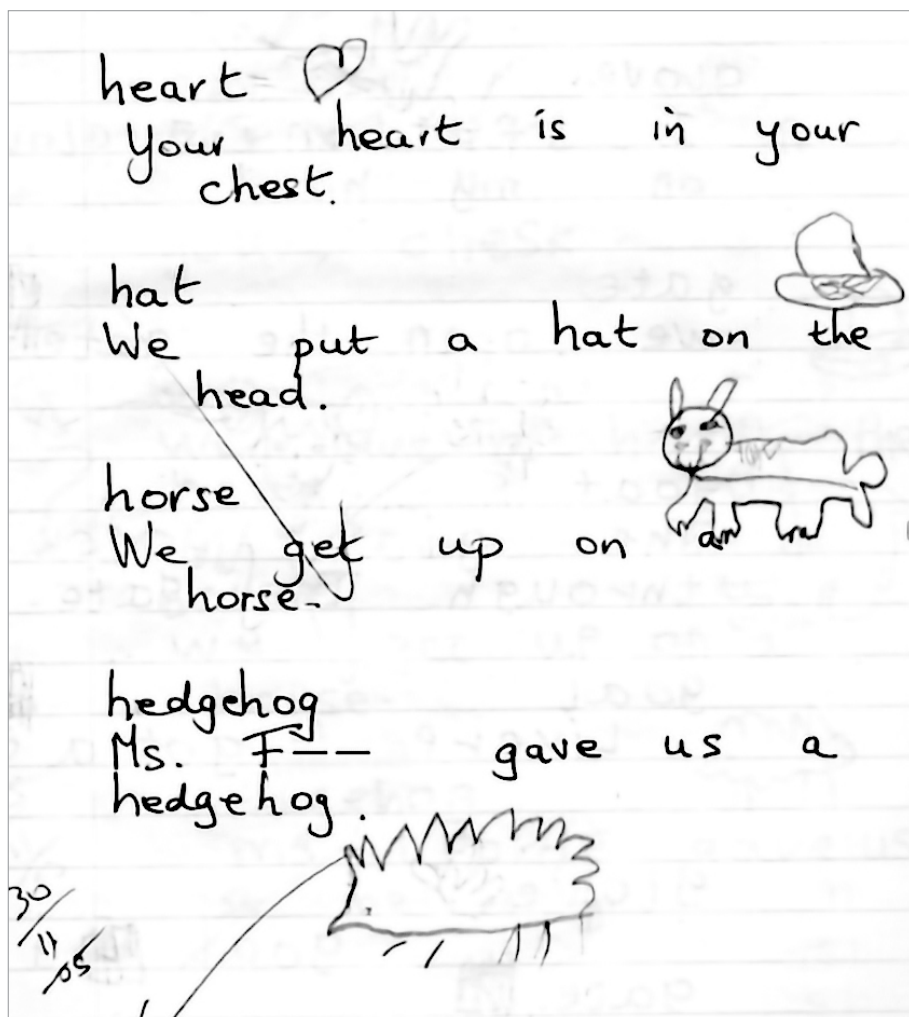 heart
Your heart is in your
chest.
hat
We put a hat on the
head.
horse
We get up on a
horse.
hedgehog
Ms. F--
gave us a
hedgehog.
30/11/05